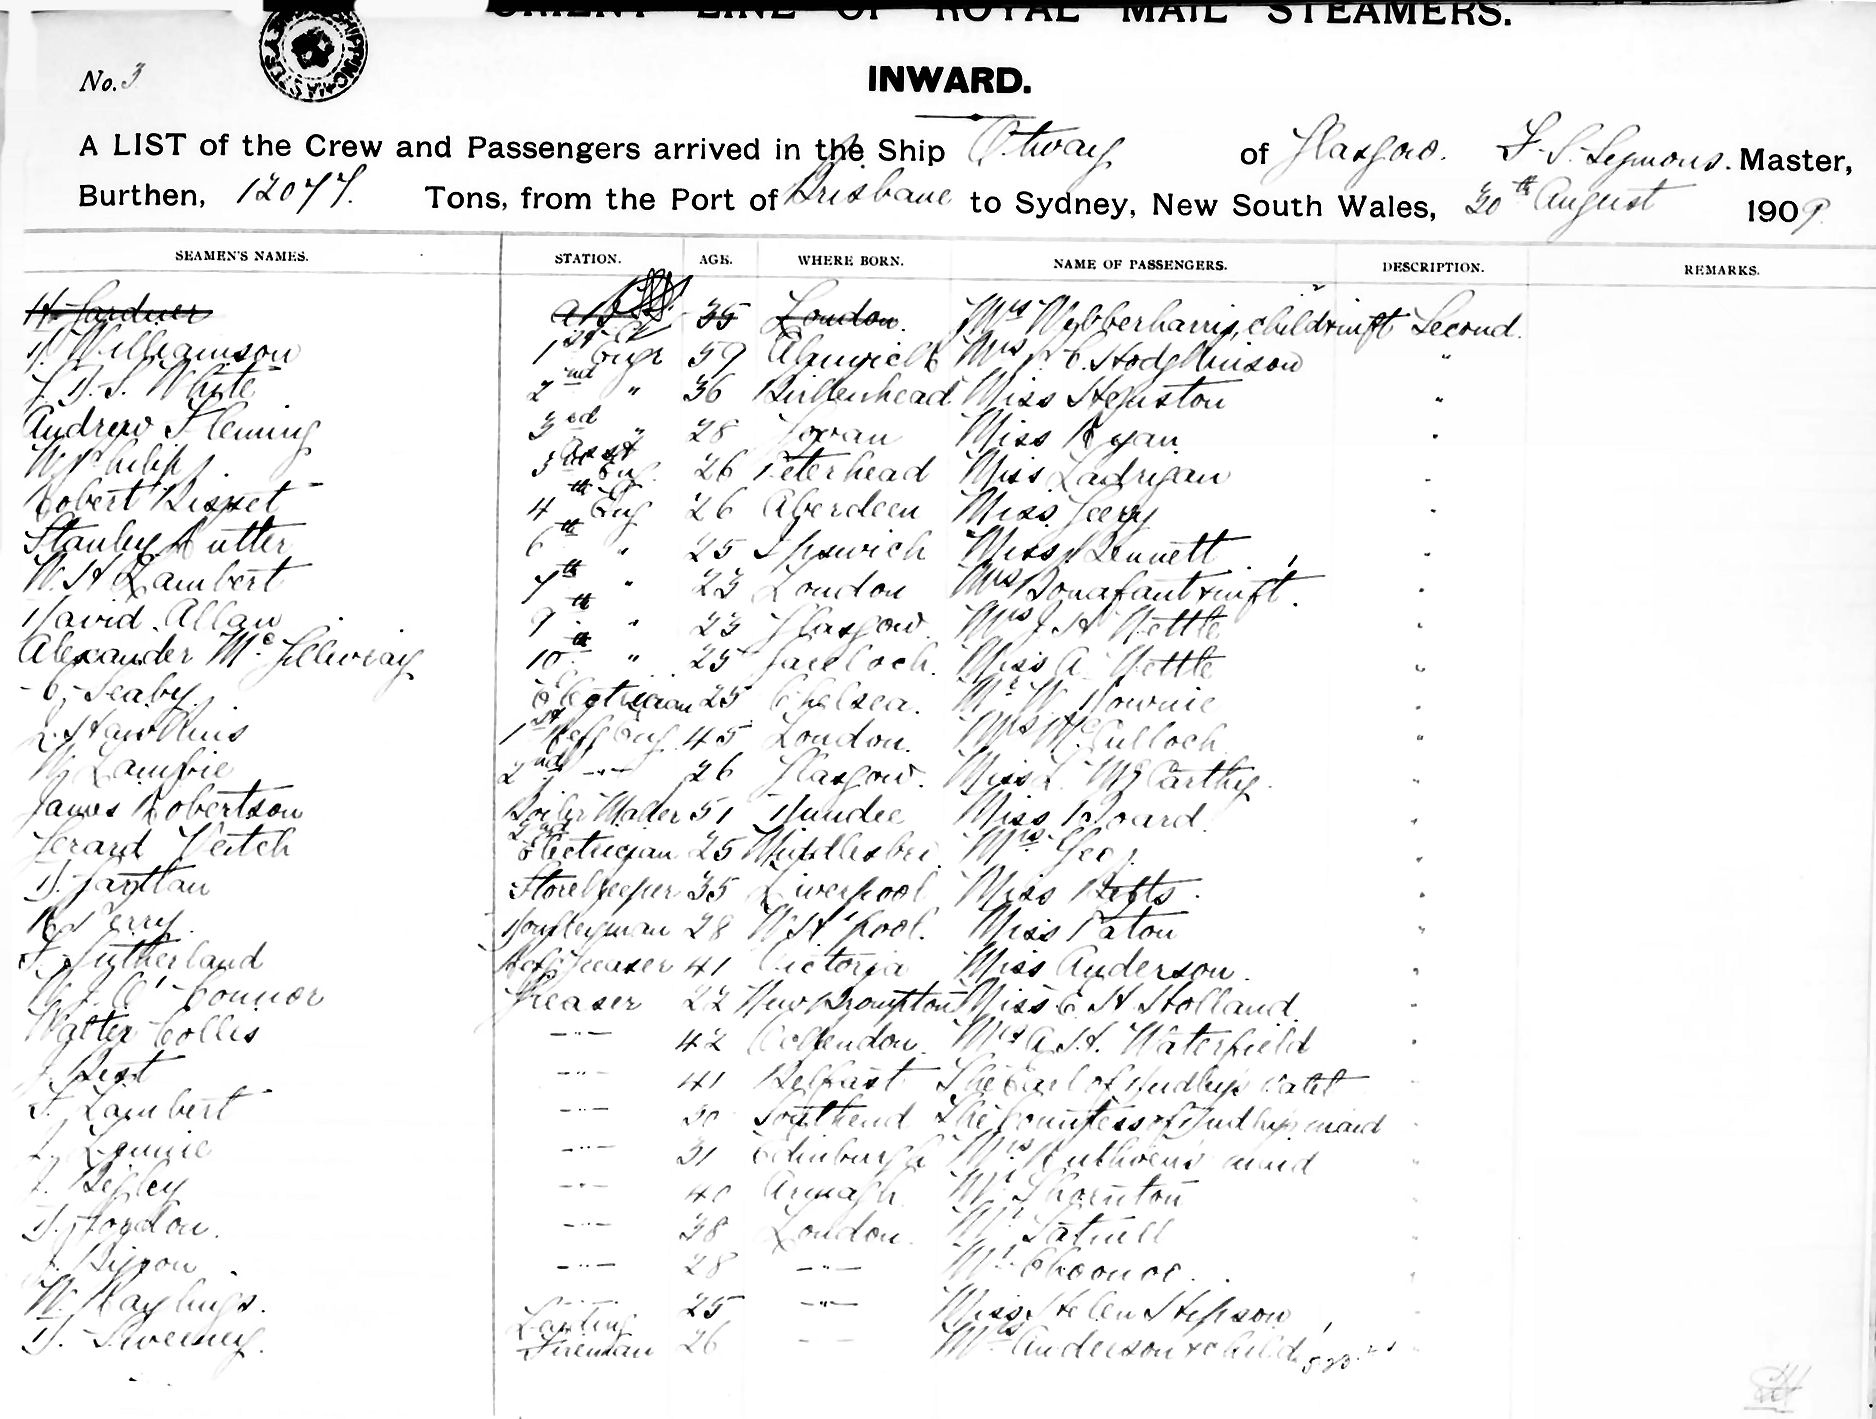 ORIENT LINE OF ROYAL MAIL STEAMERS.
No. 3
INWARD.
A LIST of the Crew and Passengers arrived in the Ship Otway of Glasgow. F. S. Symons. Master,
Burthen, 12077. Tons, from the Port of Brisbane to Sydney, New South Wales, 30th August 1909.
SEAMEN'S NAMES. STATION. AGE. WHERE BORN. NAME OF PASSENGERS. DESCRIPTION. REMARKS.
H. Gardner 35 London. Mrs Webberharris, child & inft Second.
D. Williamson 1st Engr 59 Alnwick Mrs Hodgkinson "
White 2nd " 36 Birkenhead Miss "
Andrew Fleming 3rd " 28 Govan Miss Ryan "
W. Philip Asst 3rd Eng. 26 Peterhead Miss Ladrigan "
Robert Bisset 4th Eng 26 Aberdeen Miss Geery "
Stanley Rutter 6th " 25 Ipswich Miss Bennett "
W. H. Lambert 7th " 23 London Mrs Bonafant & inft. "
David Allan 9th " 23 Glasgow. Mrs J. H. Nettle "
Alexander McGillivray 10th " 25 Gareloch. Miss A. Nettle "
C. Seaby Electrician 25 Chelsea. Mr W. Downie "
L. Hawkins 1st Refg Eng. 45 London. Mrs McCulloch "
W. Lambie 2nd " 26 Glasgow. Miss L. McCarthy. "
James Robertson Boiler Maker 51 Dundee Miss Board. "
Gerard Veitch 2nd Electrician 25 Middlesbro Mrs Geoj "
D. Storekeeper 35 Liverpool Miss Betts. "
R. Perry. Donkeyman 28 W. H'pool. Miss Paton "
F. Sutherland Refg Greaser 41 Victoria Miss Anderson. "
O'Connor Greaser 22 New Brompton Miss E. H. Holland. "
Walter Collis " 42 Mrs A. H. Waterfield "
J. Best " 41 Belfast The Earl of Dudley's valet "
F. Lambert " 30 Southend The Countess of Dudley's maid "
L. Lennie " 31 Edinburgh Mrs Ruthven's maid "
J. Begley " 40 Armagh. Mr Thornton "
D. Gordon. " 38 London. Mr Tatnell "
" 28 " Mr "
W. Haylings. " 25 " Miss Helen Stepson "
D. Sweeney. Leading Fireman 26 " Mrs Anderson & child "